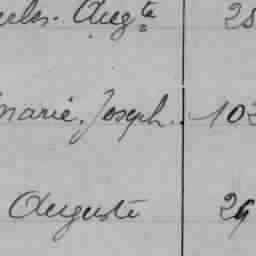 Aug.te 25
marie. Joseph. 103
Auguste 29